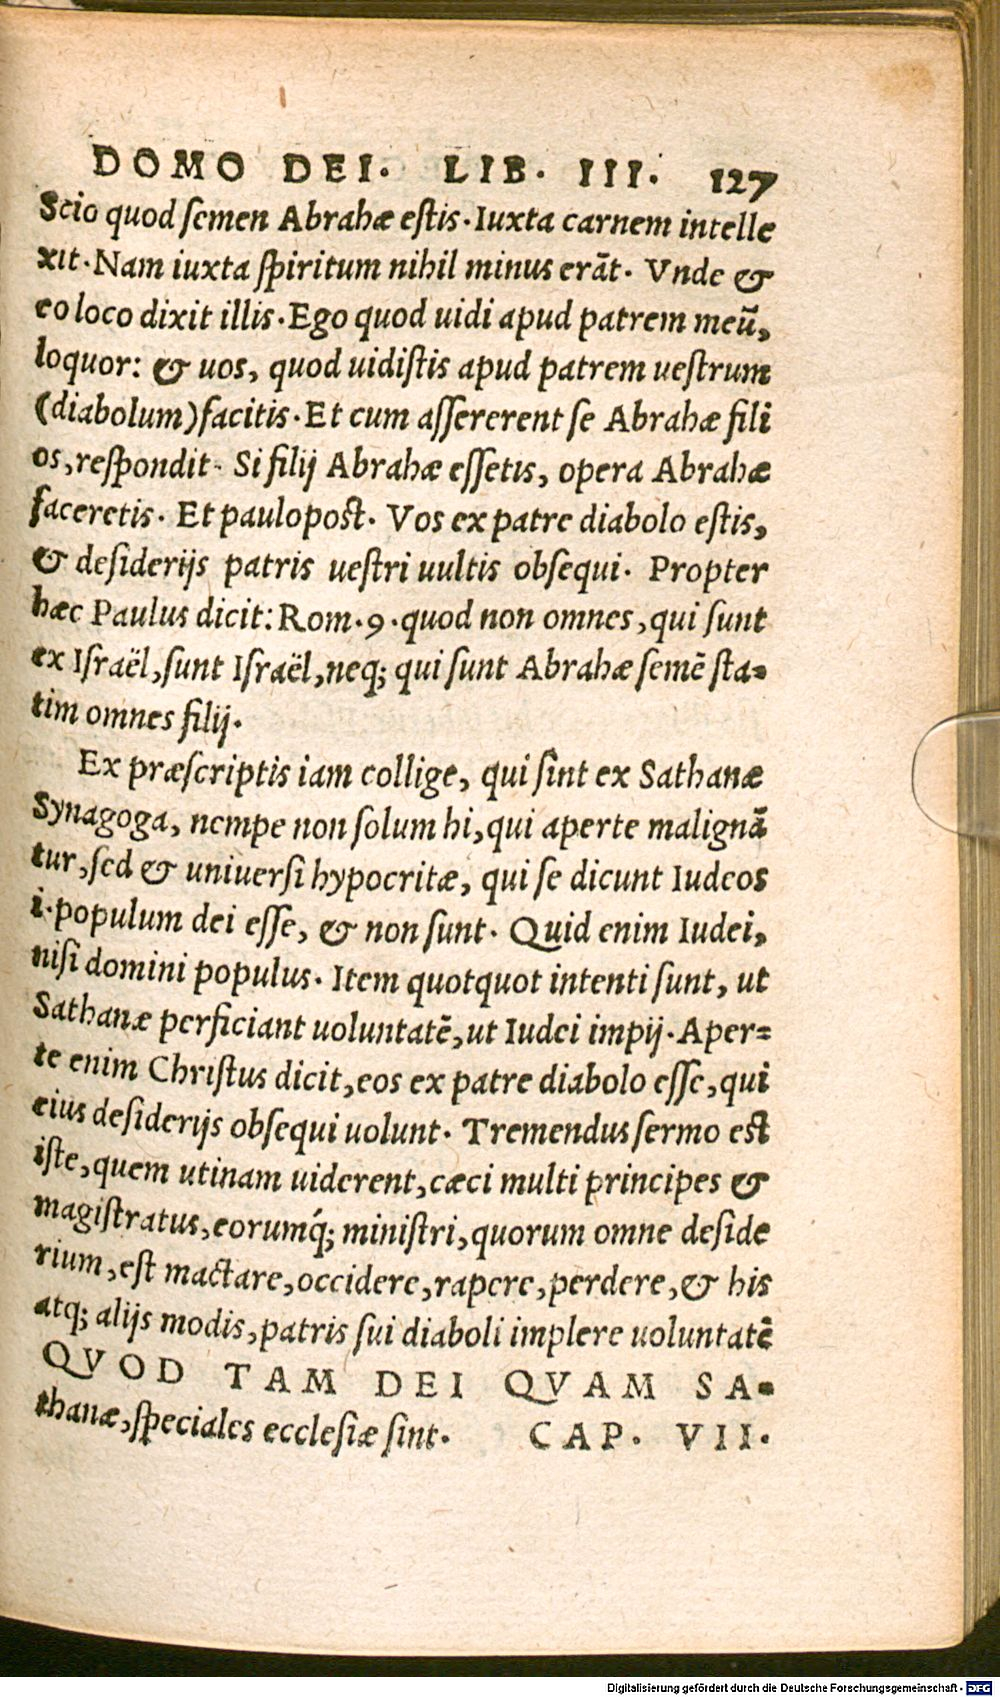 DOMO DEI. LIB. III. 127
Scio quod ſemen Abrahæ eſtis. Iuxta carnem intelle
xit. Nam iuxta ſpiritum nihil minus erãt. Vnde &
eo loco dixit illis. Ego quod uidi apud patrem meũ,
loquor: & uos, quod uidiſtis apud patrem ueſtrum
(diabolum) facitis. Et cum aſſererent ſe Abrahæ fili
os, reſpondit. Si filij Abrahæ eſſetis, opera Abrahæ
faceretis. Et paulopoſt. Vos ex patre diabolo eſtis,
& deſiderijs patris ueſtri uultis obſequi. Propter
hæc Paulus dicit: Rom. 9. quod non omnes, qui ſunt
ex Iſraël, ſunt Iſraël, neq; qui ſunt Abrahæ ſemẽ ſta-
tim omnes filij.
Ex præſcriptis iam collige, qui ſint ex Sathanæ
Synagoga, nempe non ſolum hi, qui aperte malignã
tur, ſed & uniuerſi hypocritæ, qui ſe dicunt Iudeos
i. populum dei eſſe, & non ſunt. Quid enim Iudei,
niſi domini populus. Item quotquot intenti ſunt, ut
Sathanæ perficiant uoluntatẽ, ut Iudei impij. Aper=
te enim Chriſtus dicit, eos ex patre diabolo eſſe, qui
eius deſiderijs obſequi uolunt. Tremendus ſermo eſt
iſte, quem utinam uiderent, cæci multi principes &
magiſtratus, eorumq́; miniſtri, quorum omne deſide
rium, eſt mactare, occidere, rapere, perdere, & his
atq; alijs modis, patris ſui diaboli implere uoluntatẽ
QVOD TAM DEI QVAM SA-
thanæ, ſpeciales eccleſiæ ſint. CAP. VII.
Digitalisierung gefördert durch die Deutsche Forschungsgemeinschaft - DFG